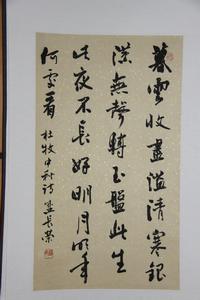 暮雲收盡溢清寒銀
漢無聲轉玉盤此生
此夜不長好明月明年
何處看 杜牧中秋詩 孟長榮